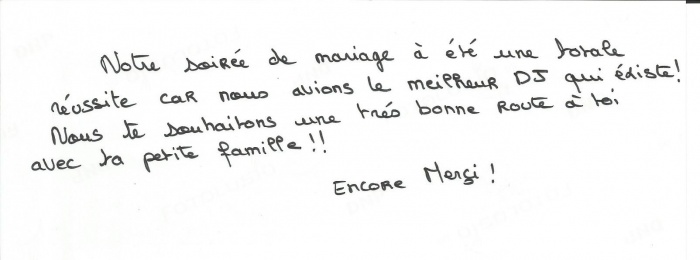 Notre soirée de mariage à été une totale
réussite car nous avions le meilleur DJ qui éxiste!
Nous te souhaitons une trés bonne route à toi
avec ta petite famille!!
Encore Merçi!